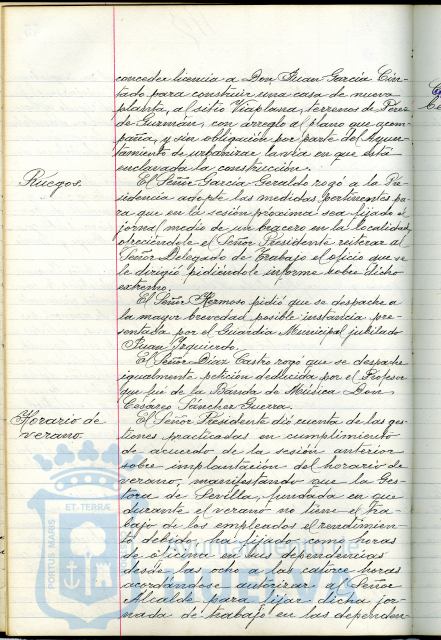 conceder licencia a Don Juan Garcia Cin-
tado para construir una casa de nueva
planta, al sitio Viaplana, terrenos de Pérez
de Guzmán, con arreglo al plano que acom-
paña, y sin obligación por parte del Ayun-
tamiento de urbanizar la via en que está
enclavada la construcción.
Ruegos.
El Señor Garcia-Geraldo rogó a la Pre-
sidencia adopte las medidas pertinentes pa-
ra que en la sesión próxima sea fijado el
jornal medio de un bracero en la localidad,
ofreciéndole el Señor Presidente reiterar al
Señor Delegado de Trabajo el oficio que se
le dirigió pidiéndole informe sobre dicho
extremo.
El Señor Hermoso pidió que se despache a
la mayor brevedad posible instancia pre-
sentada por el Guardia Municipal jubilado
Juan Izquierdo.
El Señor Diaz Castro rogó que se despache
igualmente petición deducida por el Profesor
que fué de la Banda de Música Don
Cesareo Sanchez Guerra.
Horario de
verano.
El Señor Presidente dió cuenta de las ges-
tiones practicadas en cumplimiento
de acuerdo de la sesión anterior
sobre implantación del horario de
verano, manifestando que la Ges-
tora de Sevilla, fundada en que
durante el verano no tiene el tra-
bajo de los empleados el rendimien-
to debido, ha fijado como horas
de oficina en sus dependencias
desde las ocho a las catorce horas
acordándose autorizar al Señor
Alcalde para fijar dicha jor-
nada de trabajo en las dependen-
PORTUS MARIS ET TERRÆ